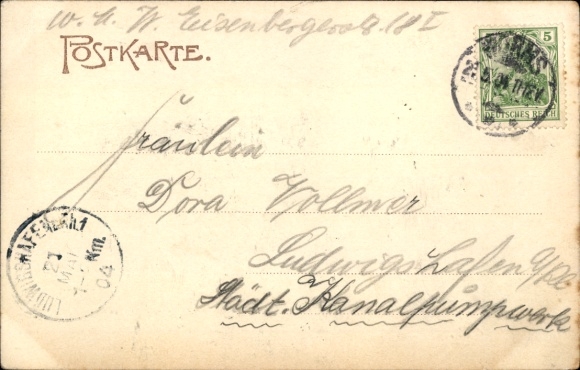 W. A. W. Eisenbergerstr. 18 I
POSTKARTE.
5
WORMS
DEUTSCHES REICH
Fräulein
Dora Vollmer
Ludwigshafen a/Rh
Städt. Kanalpumpwerk
LUDWIGSHAFEN (RH.) 1
21
MAI
Nm.
04